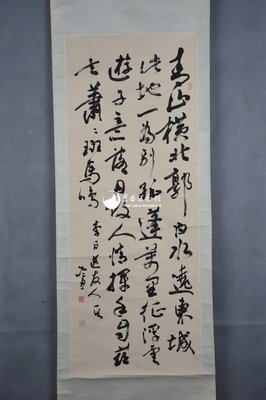 青山橫北郭白水遶東城
此地一為別孤蓬萬里征浮雲
遊子意落日故人情揮手自茲
去蕭〻班馬鳴
李白送友人